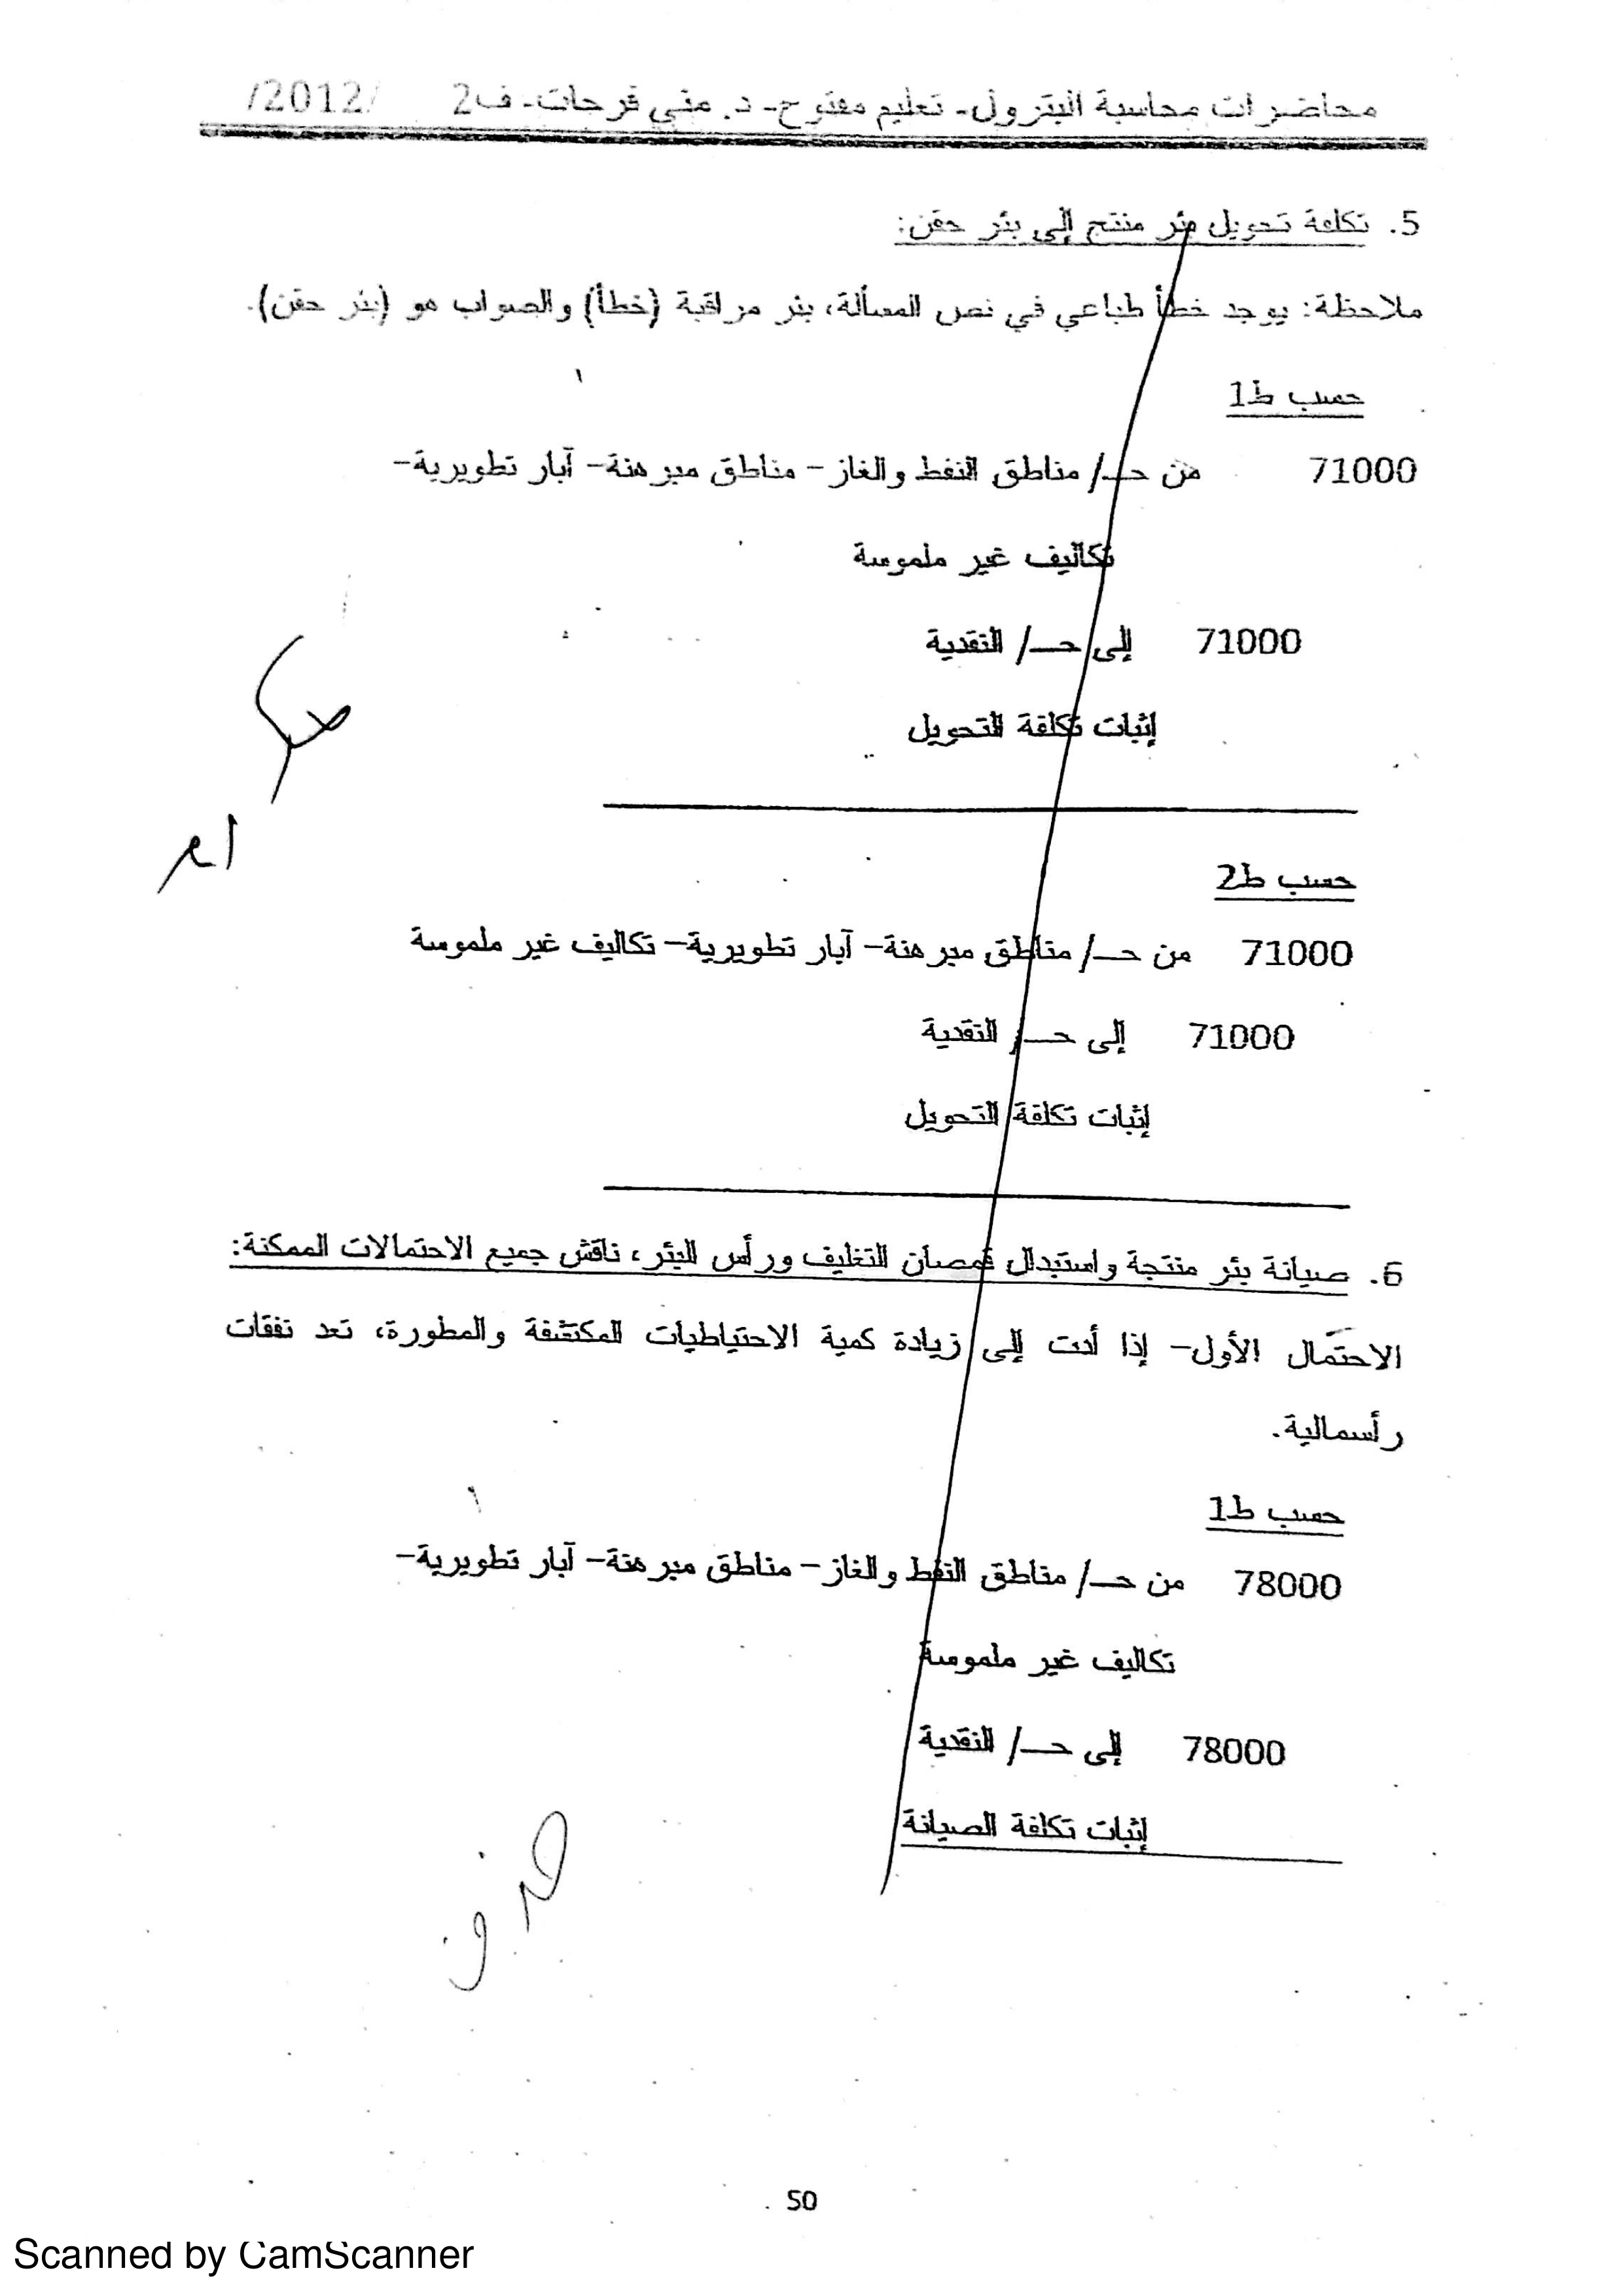 محاضرات محاسبة البترول- تعليم مفتوح- د. منى فرحات- ف2 /2012/
5. تكلفة تحويل بئر منتج إلى بئر حقن:
ملاحظة: يوجد خطأ طباعي في نص المسألة، بئر مراقبة (خطأ) والصواب هو (بئر حقن).
حسب ط1
71000 من حـ/ مناطق النفط والغاز- مناطق مبرهنة- آبار تطويرية-
تكاليف غير ملموسة
71000 إلى حـ/ النقدية
إثبات تكلفة التحويل
حسب ط2
71000 من حـ/ مناطق مبرهنة- آبار تطويرية- تكاليف غير ملموسة
71000 إلى حـ/ النقدية
إثبات تكلفة التحويل
6. صيانة بئر منتجة واستبدال قمصان التغليف ورأس البئر، ناقش جميع الاحتمالات الممكنة:
الاحتمال الأول- إذا أدت إلى زيادة كمية الاحتياطيات المكتشفة والمطورة، تعد نفقات
رأسمالية.
حسب ط1
78000 من حـ/ مناطق النفط والغاز- مناطق مبرهنة- آبار تطويرية-
تكاليف غير ملموسة
78000 إلى حـ/ النقدية
إثبات تكلفة الصيانة
50
Scanned by CamScanner